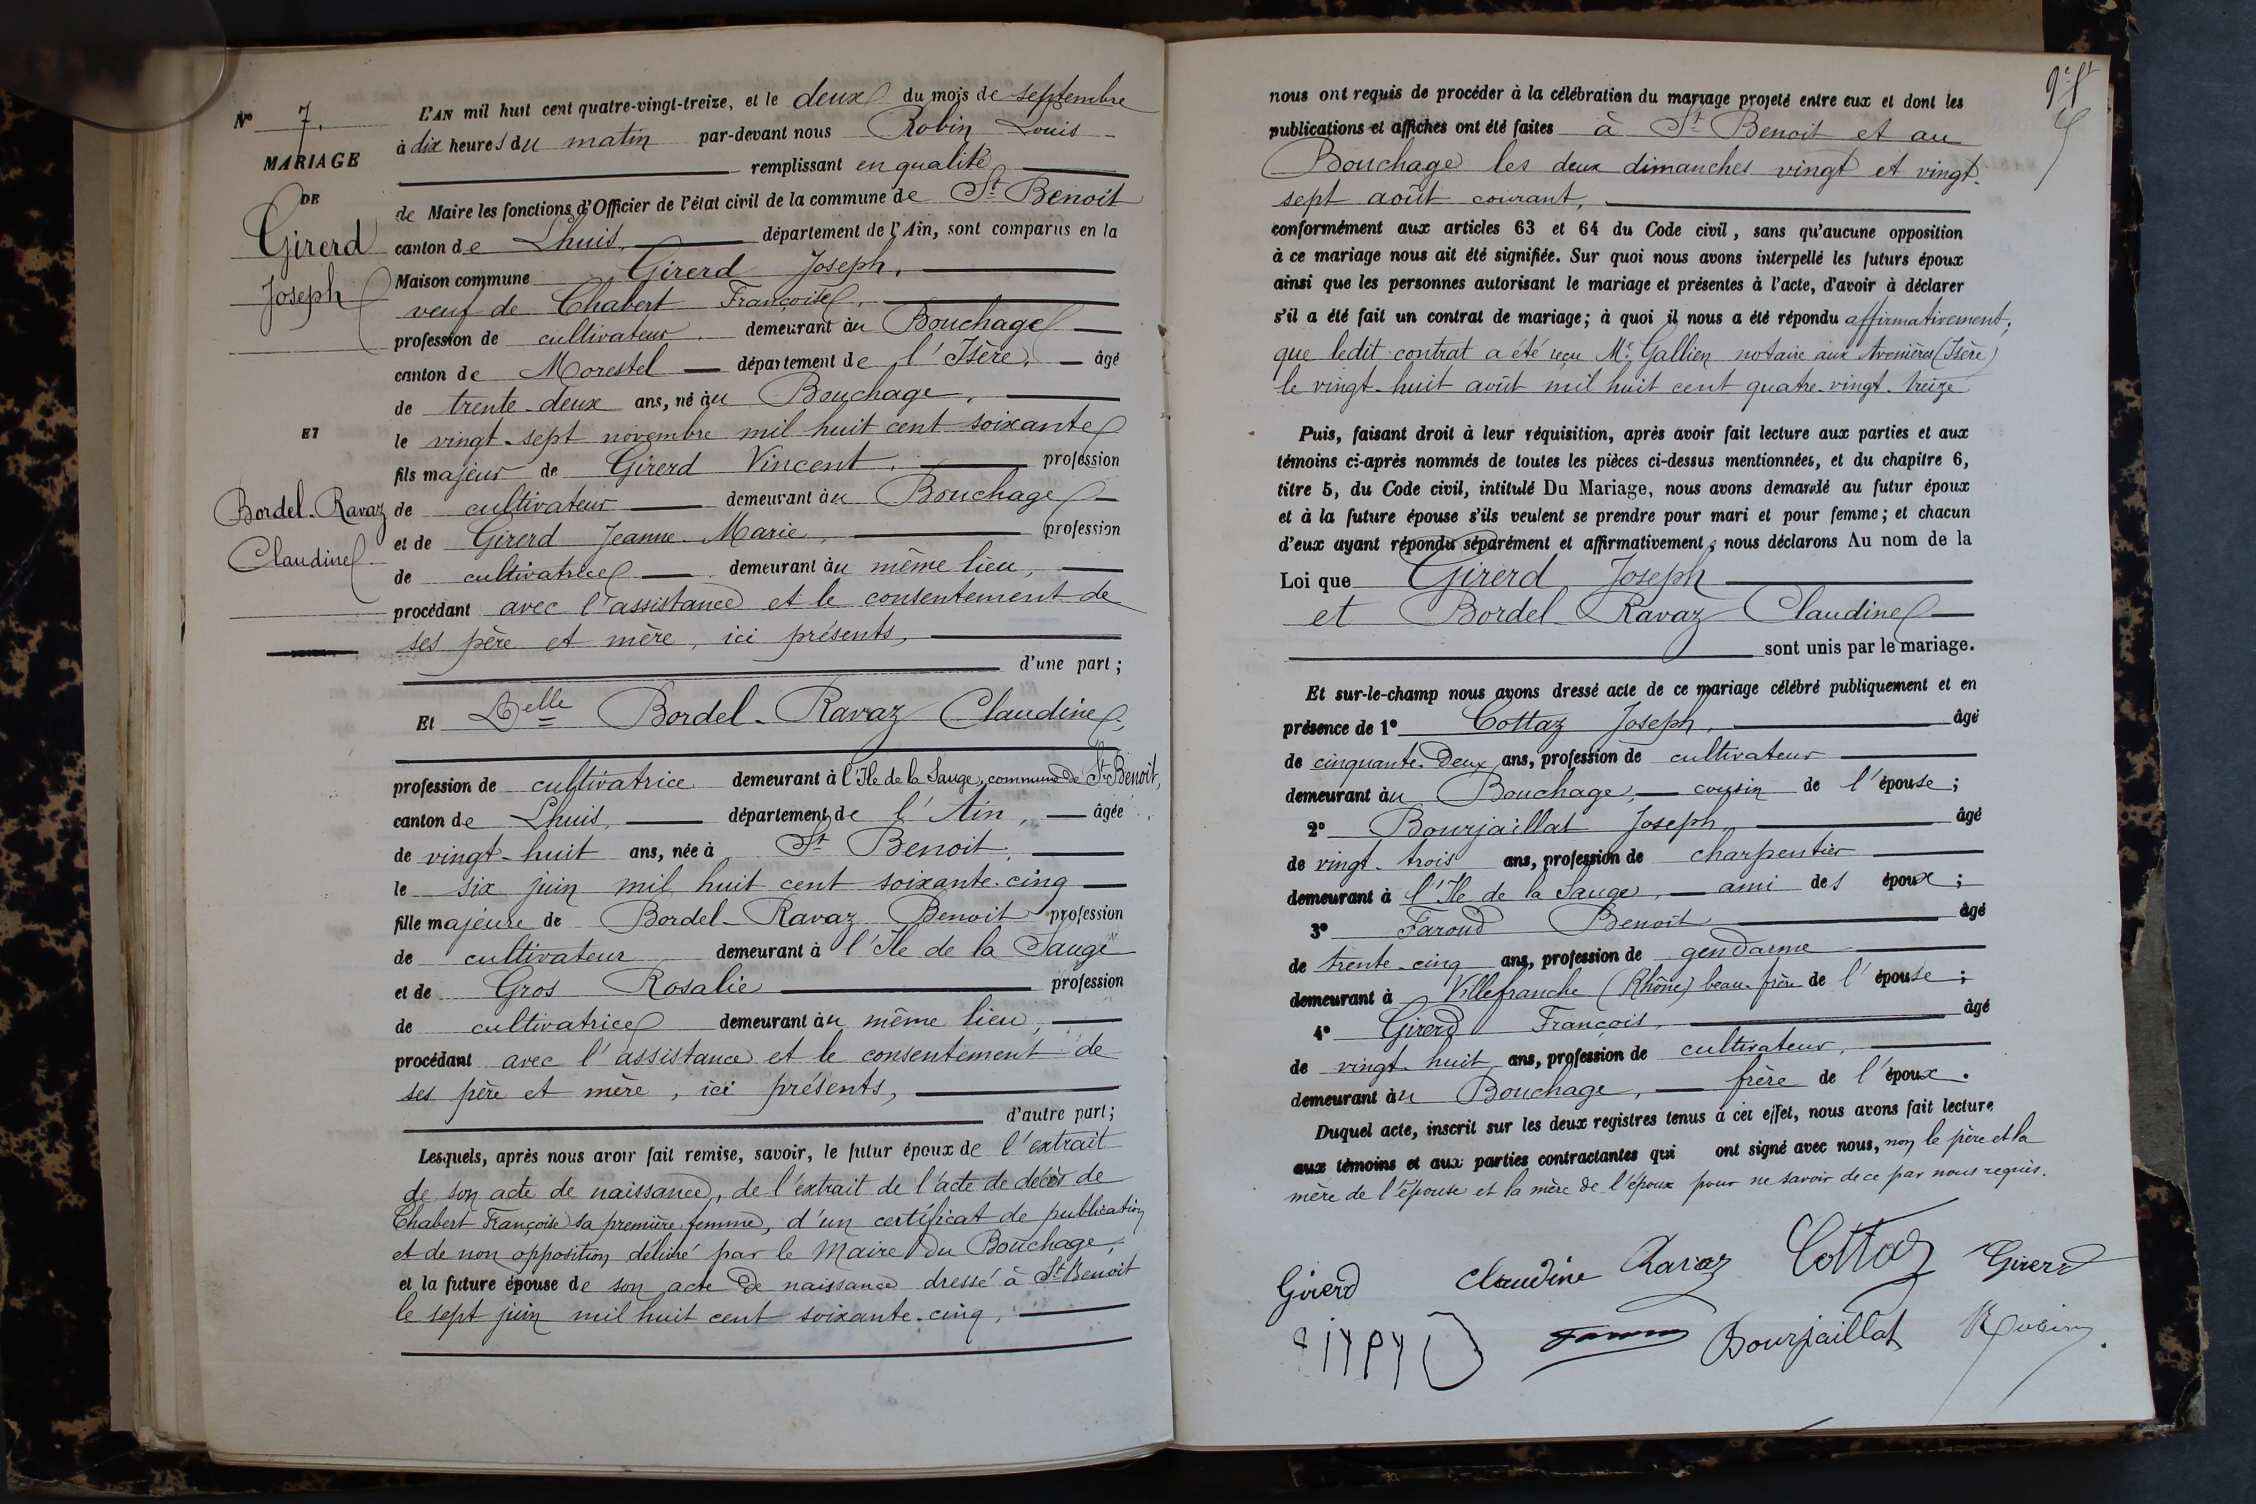 N° 7.
MARIAGE
DE
Girerd
Joseph
ET
Bordel-Ravaz
Claudine
L'AN mil huit cent quatre-vingt-treize, et le deux du mois de septembre
à dix heures du matin par-devant nous Robin Louis
remplissant en qualité
de Maire les fonctions d'Officier de l'état civil de la commune de St Benoit
canton de Lhuis, département de l'Ain, sont comparus en la
Maison commune Girerd Joseph,
veuf de Chabert Françoise,
profession de cultivateur. demeurant au Bouchage
canton de Morestel département de l'Isère, âgé
de trente-deux ans, né au Bouchage,
le vingt-sept novembre mil huit cent soixante
fils majeur de Girerd Vincent, profession
de cultivateur demeurant au Bouchage
et de Girerd Jeanne Marie, profession
de cultivatrice demeurant au même lieu,
procédant avec l'assistance et le consentement de
ses père et mère, ici présents,
d'une part;
Et Delle Bordel-Ravaz Claudine,
profession de cultivatrice demeurant à l'Ile de la Sauge, commune de St Benoit,
canton de Lhuis, département de l'Ain, âgée
de vingt-huit ans, née à St Benoit,
le six juin mil huit cent soixante-cinq
fille majeure de Bordel-Ravaz Benoit profession
de cultivateur demeurant à l'Ile de la Sauge
et de Gros Rosalie profession
de cultivatrice demeurant au même lieu,
procédant avec l'assistance et le consentement de
ses père et mère, ici présents,
d'autre part;
Lesquels, après nous avoir fait remise, savoir, le futur époux de l'extrait
de son acte de naissance, de l'extrait de l'acte de décès de
Chabert Françoise sa première femme, d'un certificat de publication
et de non opposition délivré par le Maire du Bouchage,
et la future épouse de son acte de naissance dressé à St Benoit
le sept juin mil huit cent soixante-cinq,
nous ont requis de procéder à la célébration du mariage projeté entre eux et dont les
publications et affiches ont été faites à St Benoit et au
Bouchage les deux dimanches vingt et vingt-
sept août courant,
conformément aux articles 63 et 64 du Code civil, sans qu'aucune opposition
à ce mariage nous ait été signifiée. Sur quoi nous avons interpellé les futurs époux
ainsi que les personnes autorisant le mariage et présentes à l'acte, d'avoir à déclarer
s'il a été fait un contrat de mariage; à quoi il nous a été répondu affirmativement,
que ledit contrat a été reçu Me Gallien notaire aux Avenières (Isère)
le vingt-huit août mil huit cent quatre-vingt-treize
Puis, faisant droit à leur réquisition, après avoir fait lecture aux parties et aux
témoins ci-après nommés de toutes les pièces ci-dessus mentionnées, et du chapitre 6,
titre 5, du Code civil, intitulé Du Mariage, nous avons demandé au futur époux
et à la future épouse s'ils veulent se prendre pour mari et pour femme; et chacun
d'eux ayant répondu séparément et affirmativement, nous déclarons Au nom de la
Loi que Girerd Joseph
et Bordel Ravaz Claudine
sont unis par le mariage.
Et sur-le-champ nous avons dressé acte de ce mariage célébré publiquement et en
présence de 1° Cottaz Joseph, âgé
de cinquante-deux ans, profession de cultivateur
demeurant au Bouchage, cousin de l'épouse;
2° Bourjaillat Joseph, âgé
de vingt-trois ans, profession de charpentier
demeurant à l'Ile de la Sauge, ami des époux;
3° Faroud Benoit âgé
de trente-cinq ans, profession de gendarme
demeurant à Villefranche (Rhône) beau-frère de l'épouse;
4° Girerd François, âgé
de vingt-huit ans, profession de cultivateur,
demeurant au Bouchage, frère de l'époux.
Duquel acte, inscrit sur les deux registres tenus à cet effet, nous avons fait lecture
aux témoins et aux parties contractantes qui ont signé avec nous, non le père et la
mère de l'épouse et la mère de l'époux pour ne savoir de ce par nous requis.
Girerd Claudine Ravaz Cottaz Girerd
Bourjaillat Robin